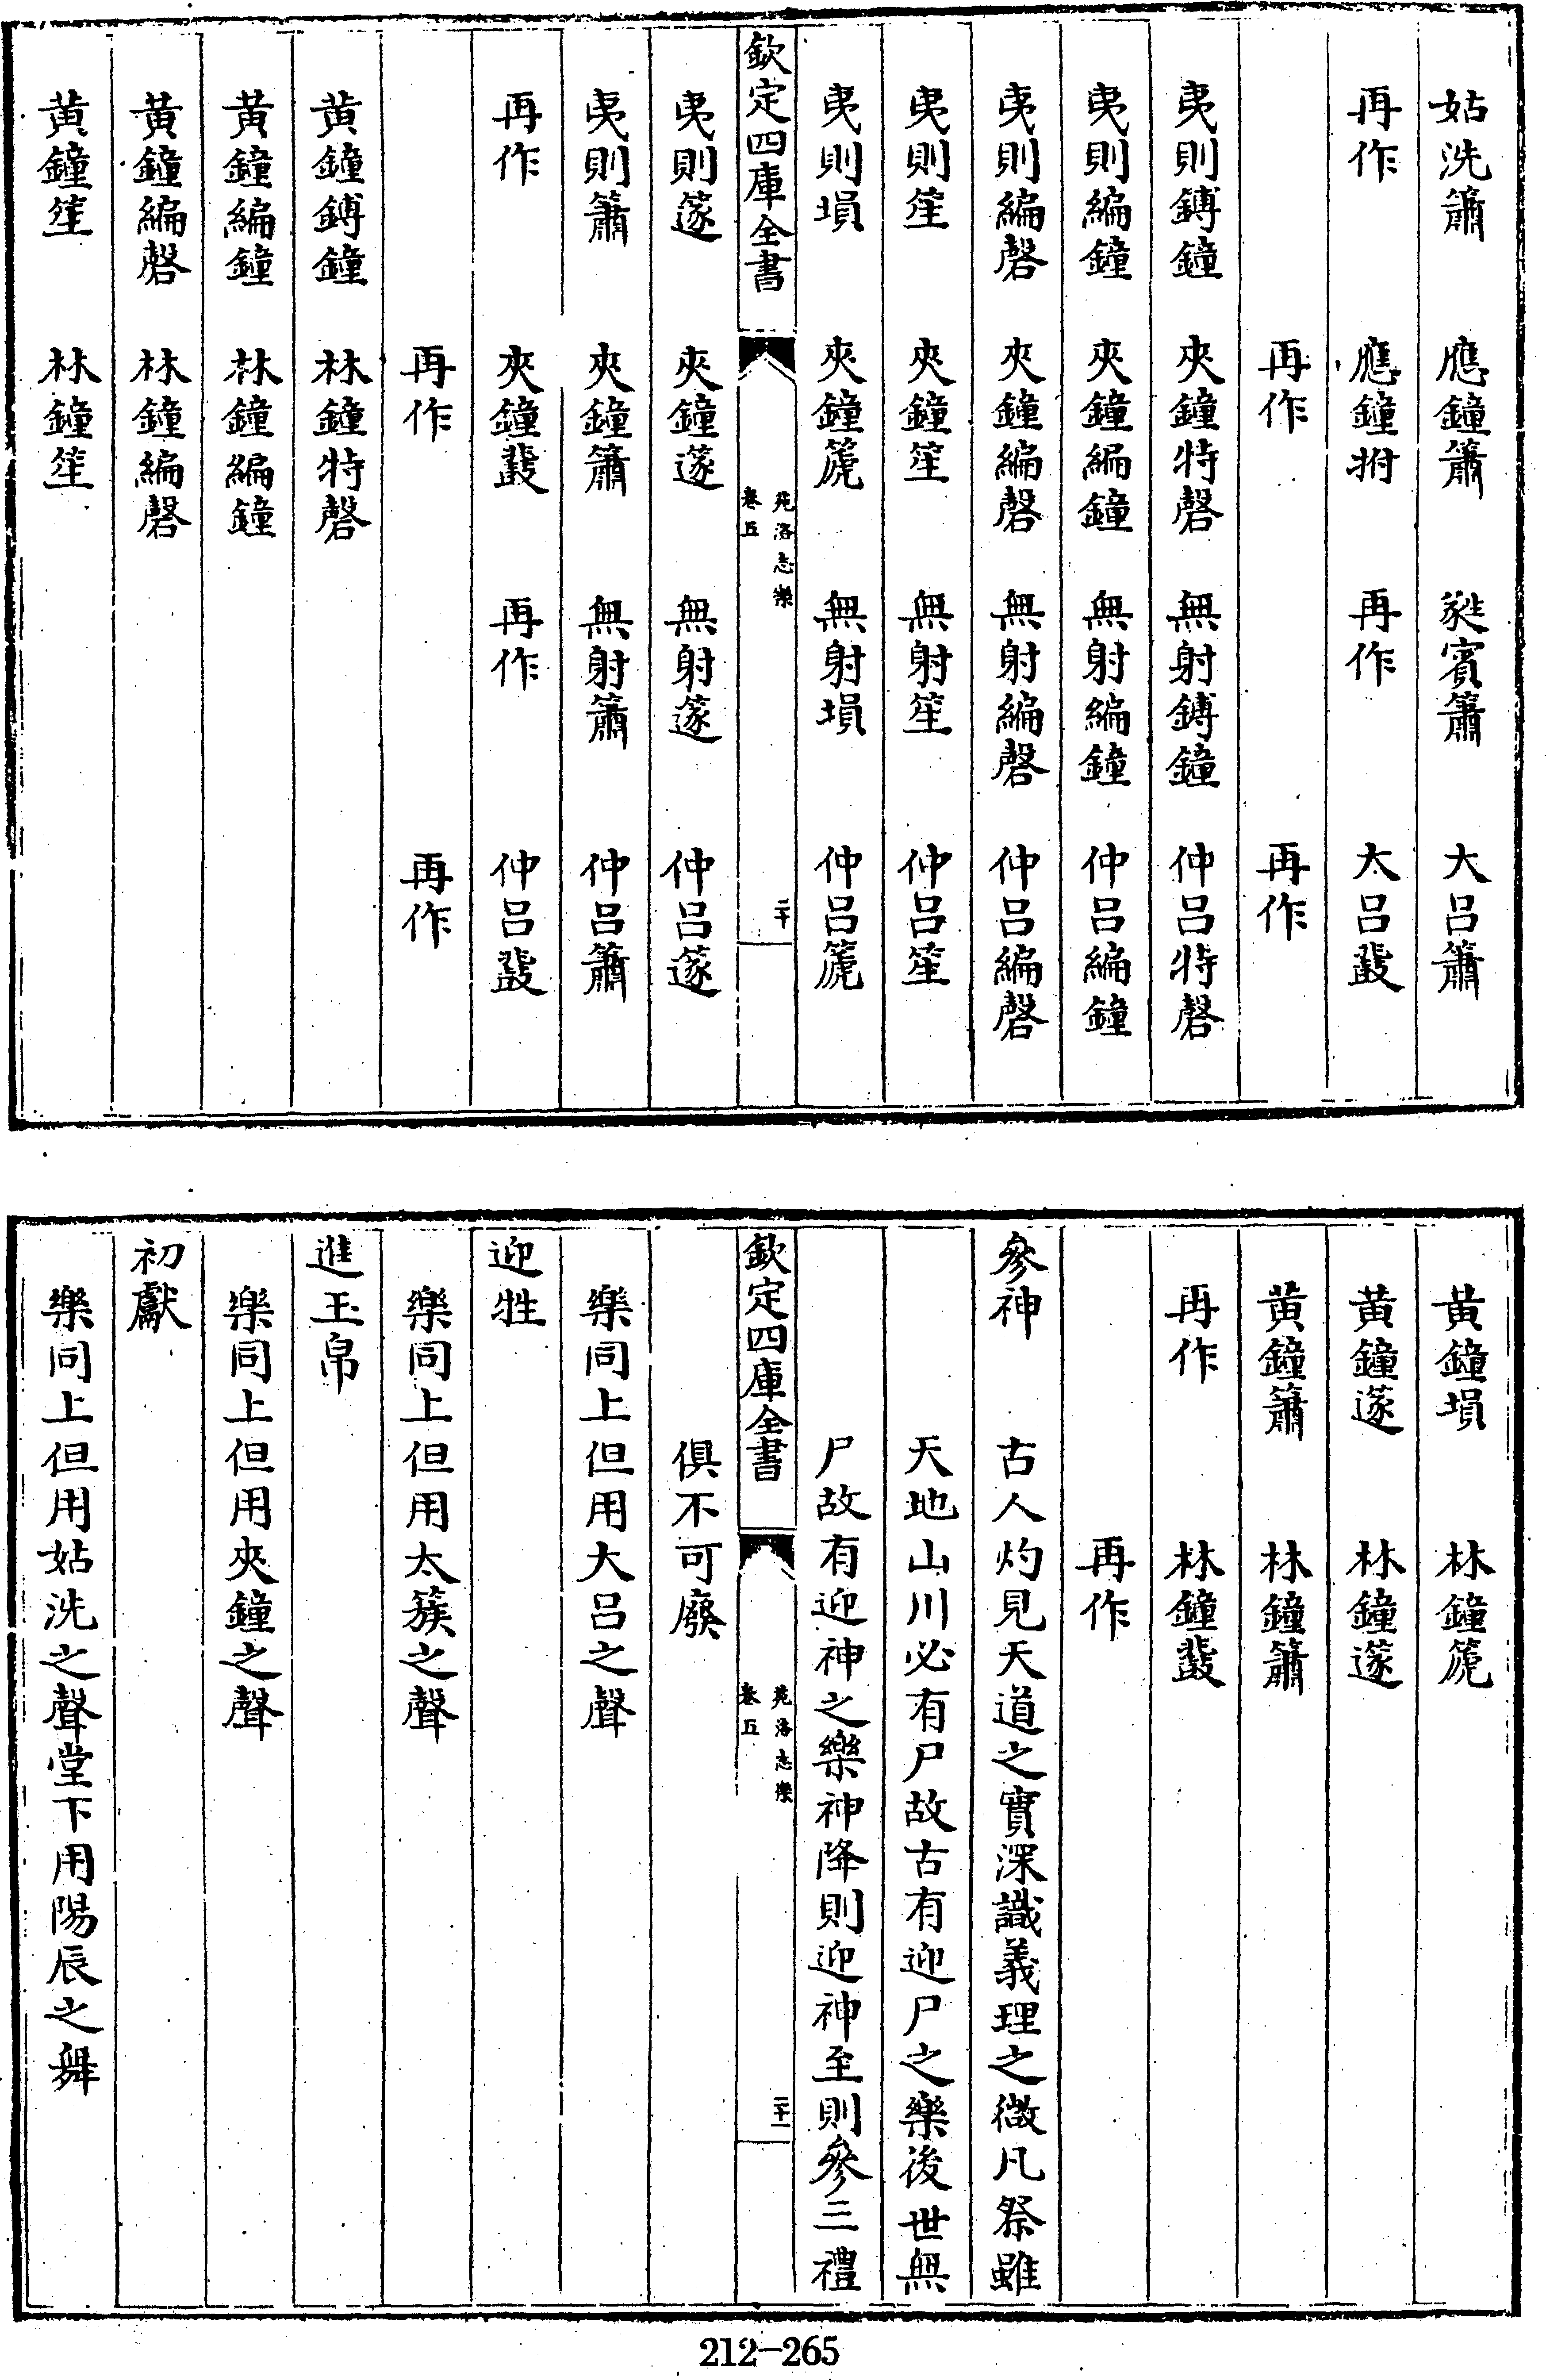 姑洗簫　應鐘簫　蕤賓簫　大呂簫
再作　應鐘拊　再作　大呂鼗
再作　再作
夷則鎛鐘　夾鐘特磬　無射鎛鐘　仲呂特磬
夷則編鐘　夾鐘編鐘　無射編鐘　仲呂編鐘
夷則編磬　夾鐘編磬　無射編磬　仲呂編磬
夷則笙　夾鐘笙　無射笙　仲呂笙
夷則塤　夾鐘箎　無射塤　仲呂箎
欽定四庫全書　苑洛志樂 卷五　二十
夷則篴　夾鐘篴　無射篴　仲呂篴
夷則簫　夾鐘簫　無射簫　仲呂簫
再作　夾鐘鼗　再作　仲呂鼗
再作　再作
黃鐘鎛鐘　林鐘特磬
黃鐘編鐘　林鐘編鐘
黃鐘編磬　林鐘編磬
黃鐘笙　林鐘笙
黃鐘塤　林鐘箎
黃鐘篴　林鐘篴
黃鐘簫　林鐘簫
再作　林鐘鼗
再作
參神　古人灼見天道之實深識義理之微凡祭雖
天地山川必有尸故古有迎尸之樂後世無
尸故有迎神之樂神降則迎神至則參三禮
欽定四庫全書　苑洛志樂 卷五　二十一
俱不可廢
樂同上但用大呂之聲
迎牲
樂同上但用太簇之聲
進玉帛
樂同上但用夾鐘之聲
初獻
樂同上但用姑洗之聲堂下用陽辰之舞
212-265